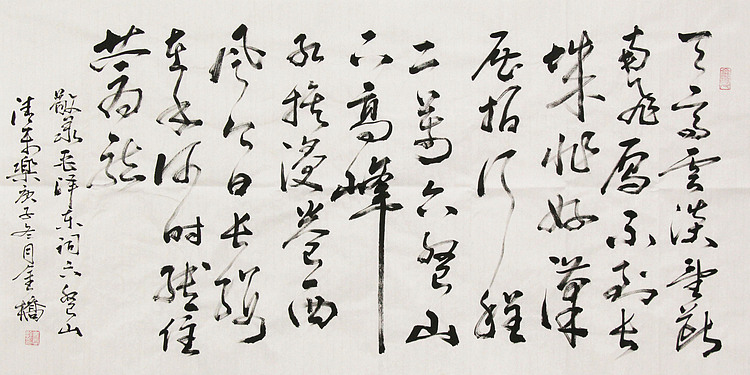 天高雲淡望断
南飛雁不到长
城非好漢
屈指行程
二萬六盤山
上高峰
红旗漫卷西
风今日长缨
在手何时缚住
苍龍
敬录毛泽东词六盤山
清平樂庚子冬月金橋